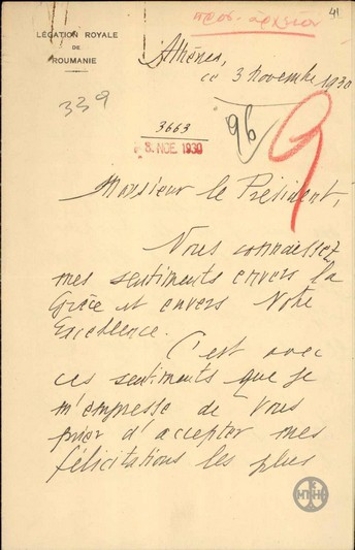 41
LÉGATION ROYALE
DE
ROUMANIE
Athènes,
ce 3 Novembre 1930
339
3663
3. ΝΟΕ 1930
96
Monsieur le Président,
Vous connaissez
mes sentiments envers la
Grèce et envers Votre
Excellence.
C'est avec
ces sentiments que je
m'empresse de Vous
prier d'accepter mes
félicitations les plus